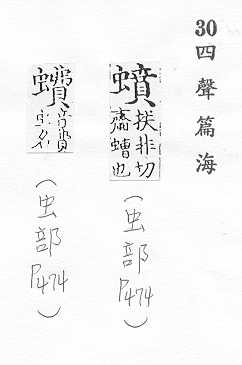 30四聲篇海
蟦 扶非切
齋螬也
(虫部 P474)
音費
虫名
(虫部 P474)